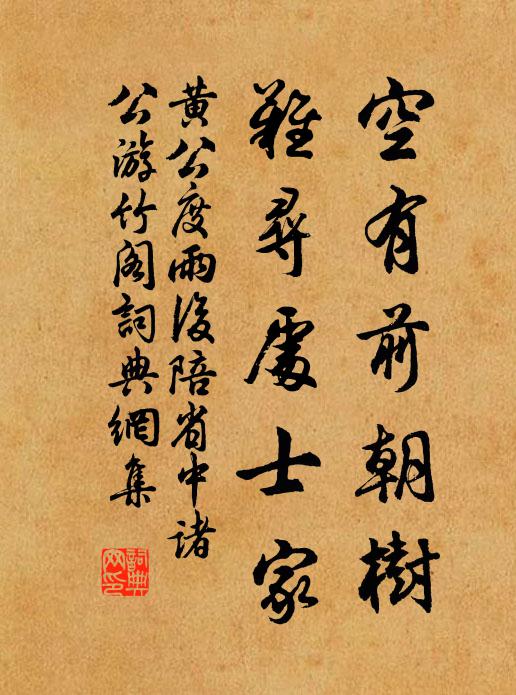 空有前朝樹
難尋處士家
黃公度雨後陪省中諸
公游竹閣詞典網集
詞典網印